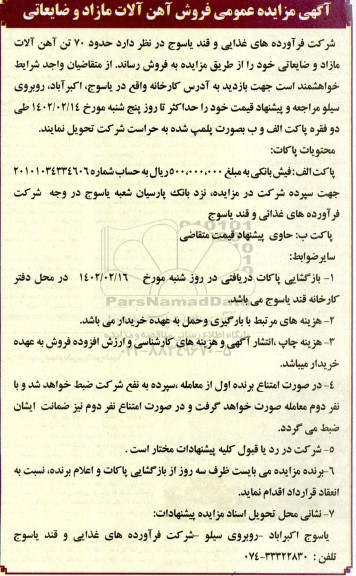 آگهی مزایده عمومی فروش آهن آلات مازاد و ضایعاتی
شرکت فرآورده های غذایی و قند یاسوج در نظر دارد حدود ۷۰ تن آهن آلات
مازاد و ضایعاتی خود را از طریق مزایده به فروش رساند. از متقاضیان واجد شرایط
خواهشمند است جهت بازدید به آدرس کارخانه واقع در یاسوج، اکبرآباد، روبروی
سیلو مراجعه و پیشنهاد قیمت خود را حداکثر تا روز پنج شنبه مورخ ۱۴۰۲/۰۲/۱۴ طی
دو فقره پاکت الف و ب بصورت پلمپ شده به حراست شرکت تحویل نمایند.
محتویات پاکات:
پاکت الف: فیش بانکی به مبلغ ۵۰۰,۰۰۰,۰۰۰ ریال به حساب شماره ۲۰۱۰۱۰۳۴۳۳۴۶۰۶
جهت سپرده شرکت در مزایده، نزد بانک پارسیان شعبه یاسوج در وجه شرکت
فرآورده های غذائی و قند یاسوج
پاکت ب: حاوی پیشنهاد قیمت متقاضی
سایرضوابط:
۱- بازگشایی پاکات دریافتی در روز شنبه مورخ ۱۴۰۲/۰۲/۱۶ در محل دفتر
کارخانه قند یاسوج می باشد.
۲- هزینه های مرتبط با بارگیری وحمل به عهده خریدار می باشد.
۳- هزینه چاپ ،انتشار آگهی و هزینه های کارشناسی و ارزش افزوده فروش به عهده
خریدار میباشد.
۴- در صورت امتناع برنده اول از معامله ،سپرده به نفع شرکت ضبط خواهد شد و با
نفر دوم معامله صورت خواهد گرفت و در صورت امتناع نفر دوم نیز ضمانت ایشان
ضبط می گردد.
۵- شرکت در رد یا قبول کلیه پیشنهادات مختار است .
۶-برنده مزایده می بایست ظرف سه روز از بازگشایی پاکات و اعلام برنده، نسبت به
انعقاد قرارداد اقدام نماید.
۷- نشانی محل تحویل اسناد مزایده پیشنهادات:
یاسوج اکبراباد -روبروی سیلو -شرکت فرآورده های غذایی و قند یاسوج
تلفن : ۳۳۳۲۲۸۳۰-۰۷۴